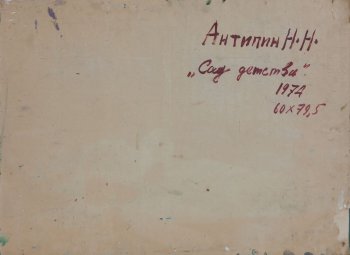 Антипин Н.Н.
„Сад детства".
1974
60×79,5